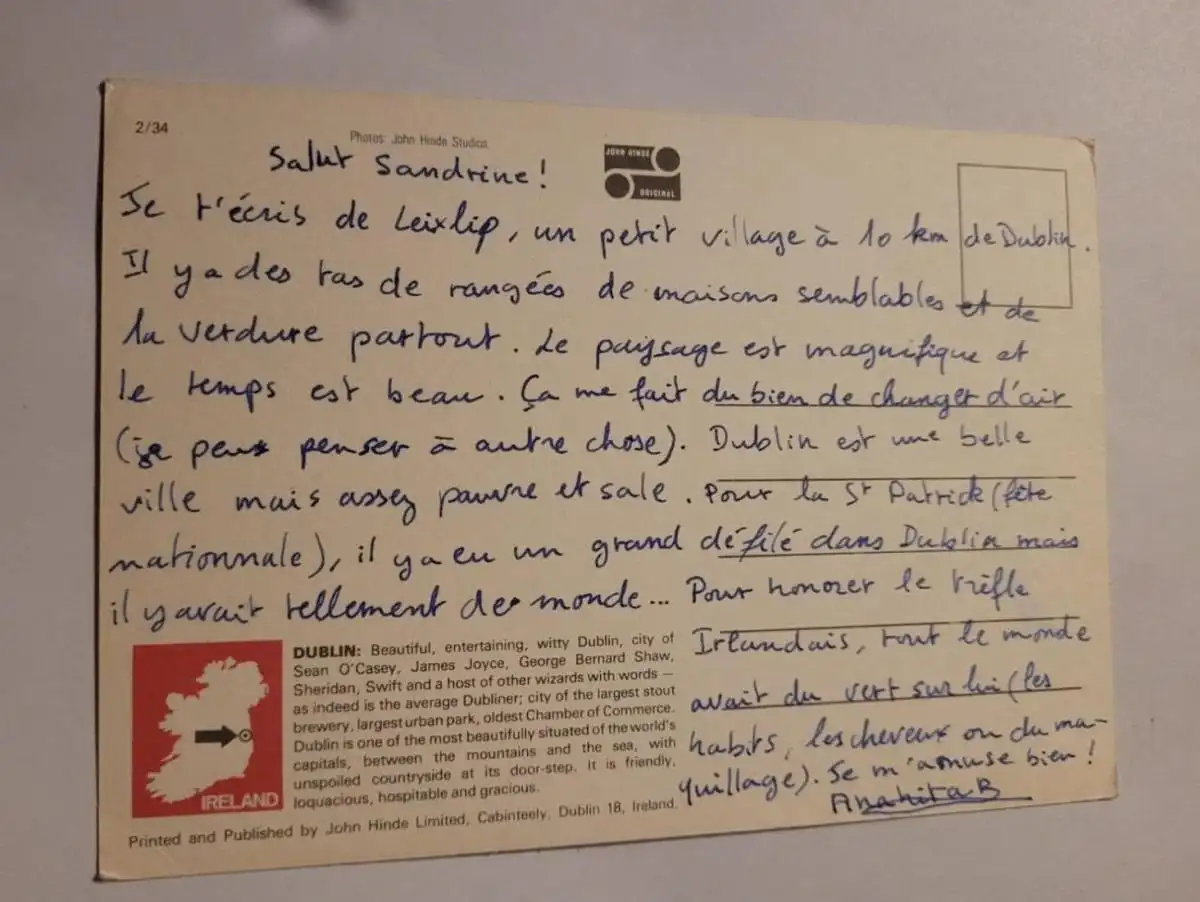 2/34
Photos: John Hinde Studios.
JOHN HINDE
ORIGINAL
Salut Sandrine!
Je t'écris de Leixlip, un petit village à 10 km de Dublin.
Il y a des tas de rangées de maisons semblables et de
la verdure partout. Le paysage est magnifique et
le temps est beau. Ça me fait du bien de changer d'air
(je peux penser à autre chose). Dublin est une belle
ville mais assez pauvre et sale. Pour la St Patrick (fête
nationnale), il y a eu un grand défilé dans Dublin mais
il y avait tellement de monde... Pour honorer le trèfle
Irlandais, tout le monde
avait du vert sur lui (les
habits, les cheveux ou du ma-
quillage). Je m'amuse bien!
Anahita B
DUBLIN: Beautiful, entertaining, witty Dublin, city of
Sean O'Casey, James Joyce, George Bernard Shaw,
Sheridan, Swift and a host of other wizards with words —
as indeed is the average Dubliner; city of the largest stout
brewery, largest urban park, oldest Chamber of Commerce.
Dublin is one of the most beautifully situated of the world's
capitals, between the mountains and the sea, with
unspoiled countryside at its door-step. It is friendly,
loquacious, hospitable and gracious.
IRELAND
Printed and Published by John Hinde Limited, Cabinteely, Dublin 18, Ireland.